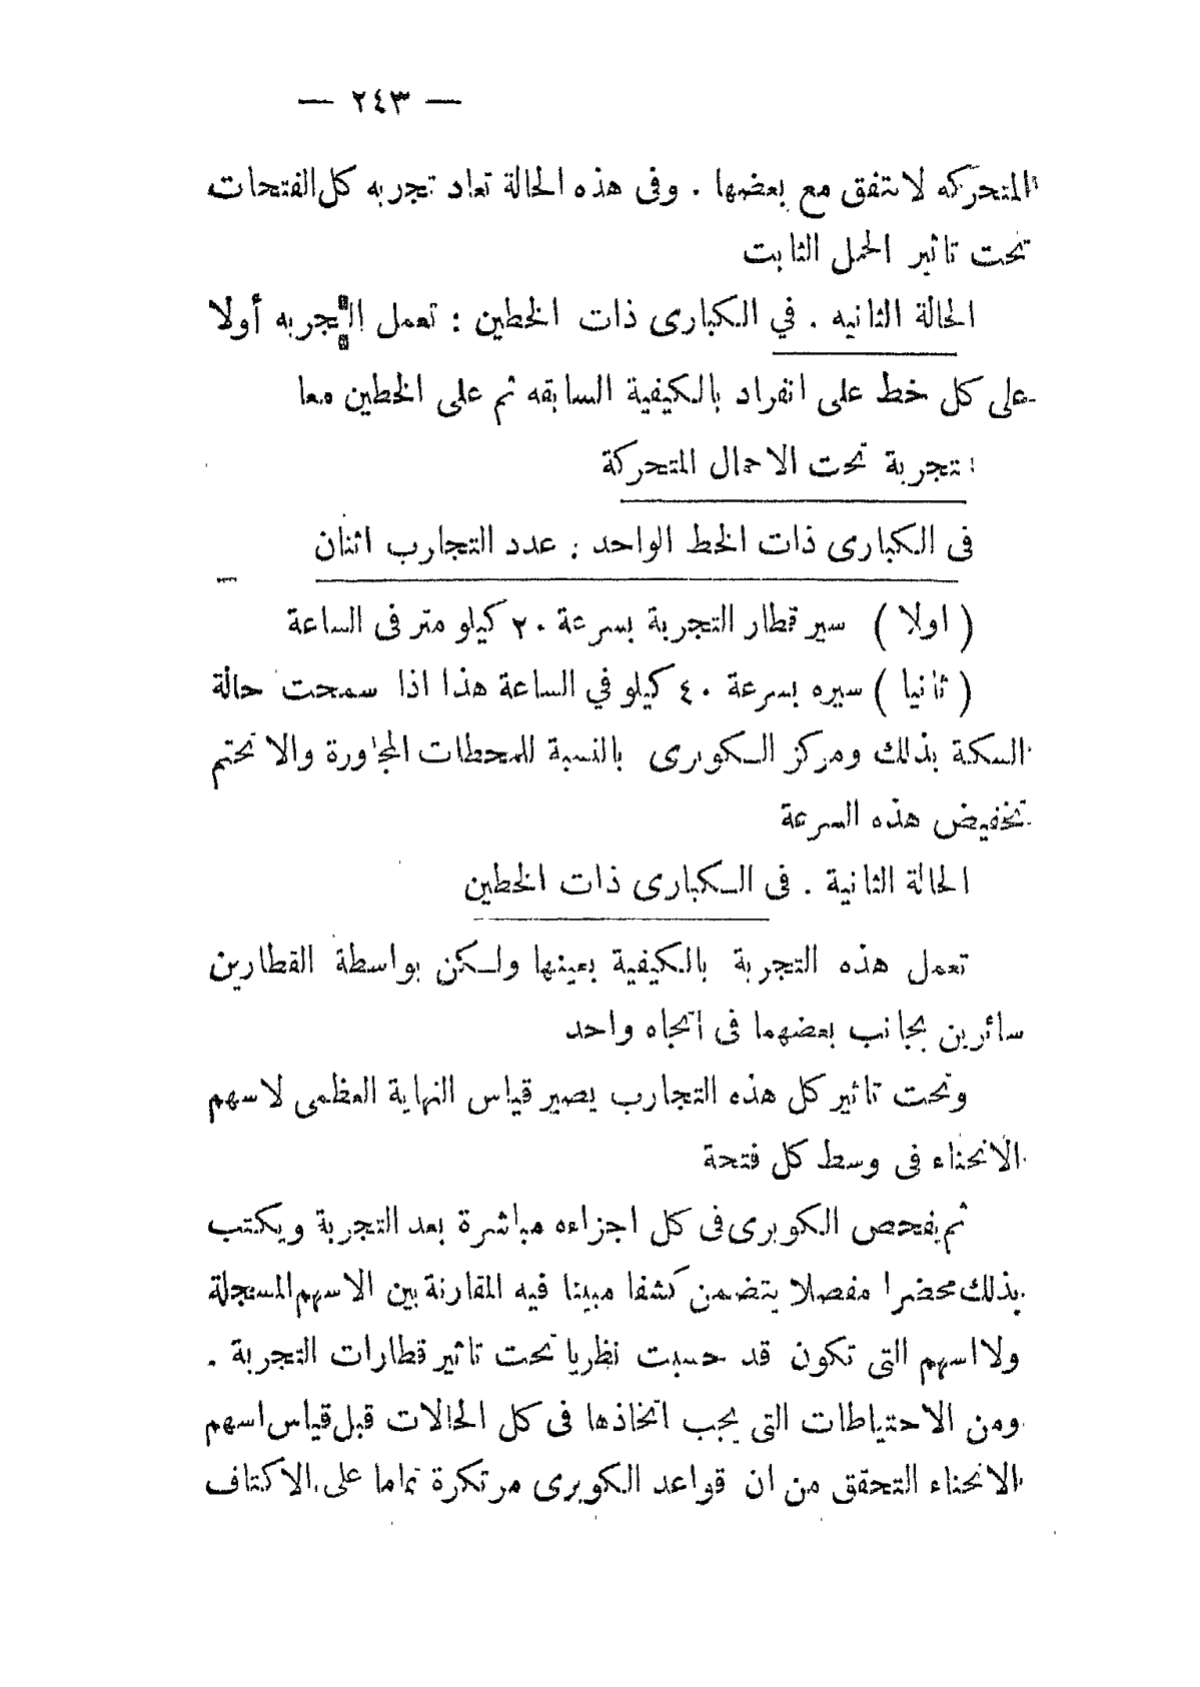 — ٢٤٣ —
المتحركه لا تتفق مع بعضها . وفى هذه الحالة تعاد تجربه كل الفتحات
تحت تاثير الحمل الثابت
الحالة الثانيه . في الكبارى ذات الخطين : تعمل التجربه أولا
على كل خط على انفراد بالكيفية السابقه ثم على الخطين معا
تجربة تحت الاحمال المتحركة
فى الكبارى ذات الخط الواحد : عدد التجارب اثنان
( اولا ) سير قطار التجربة بسرعة ٢٠ كيلو متر فى الساعة
( ثانيا ) سيره بسرعة ٤٠ كيلو في الساعة هذا اذا سمحت حالة
السكة بذلك ومركز الكوبرى بالنسبة للمحطات المجاورة والا تحتم
تخفيض هذه السرعة
الحالة الثانية . فى الكبارى ذات الخطين
تعمل هذه التجربة بالكيفية بعينها ولكن بواسطة القطارين
سائرين بجانب بعضهما فى اتجاه واحد
وتحت تاثير كل هذه التجارب يصير قياس النهاية العظمى لاسهم
الانحناء فى وسط كل فتحة
ثم يفحص الكوبرى فى كل اجزاءه مباشرة بعد التجربة ويكتب
بذلك محضرا مفصلا يتضمن كشفا مبينا فيه المقارنة بين الاسهم المسجلة
ولا اسهم التى تكون قد حسبت نظريا تحت تاثير قطارات التجربة .
ومن الاحتياطات التى يجب اتخاذها فى كل الحالات قبل قياس اسهم
الانحناء التحقق من ان قواعد الكوبرى مرتكزة تماما على الاكتاف